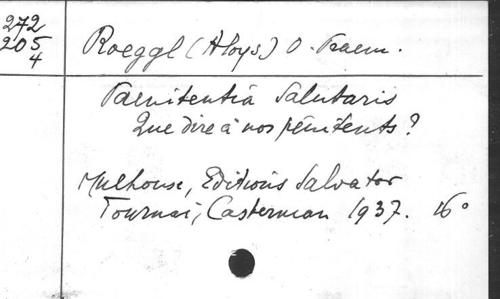 272
205
4
Roeggl (Aloys) O. Praem.
Paenitentia Salutaris
Que dire à nos pénitents?
Mulhouse, Editions Salvator
Tournai, Casterman 1937. 16°